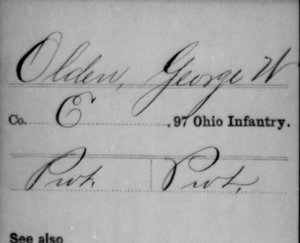 Olden, George W
Co. E, 97 Ohio Infantry.
Pvt. Pvt.
See also